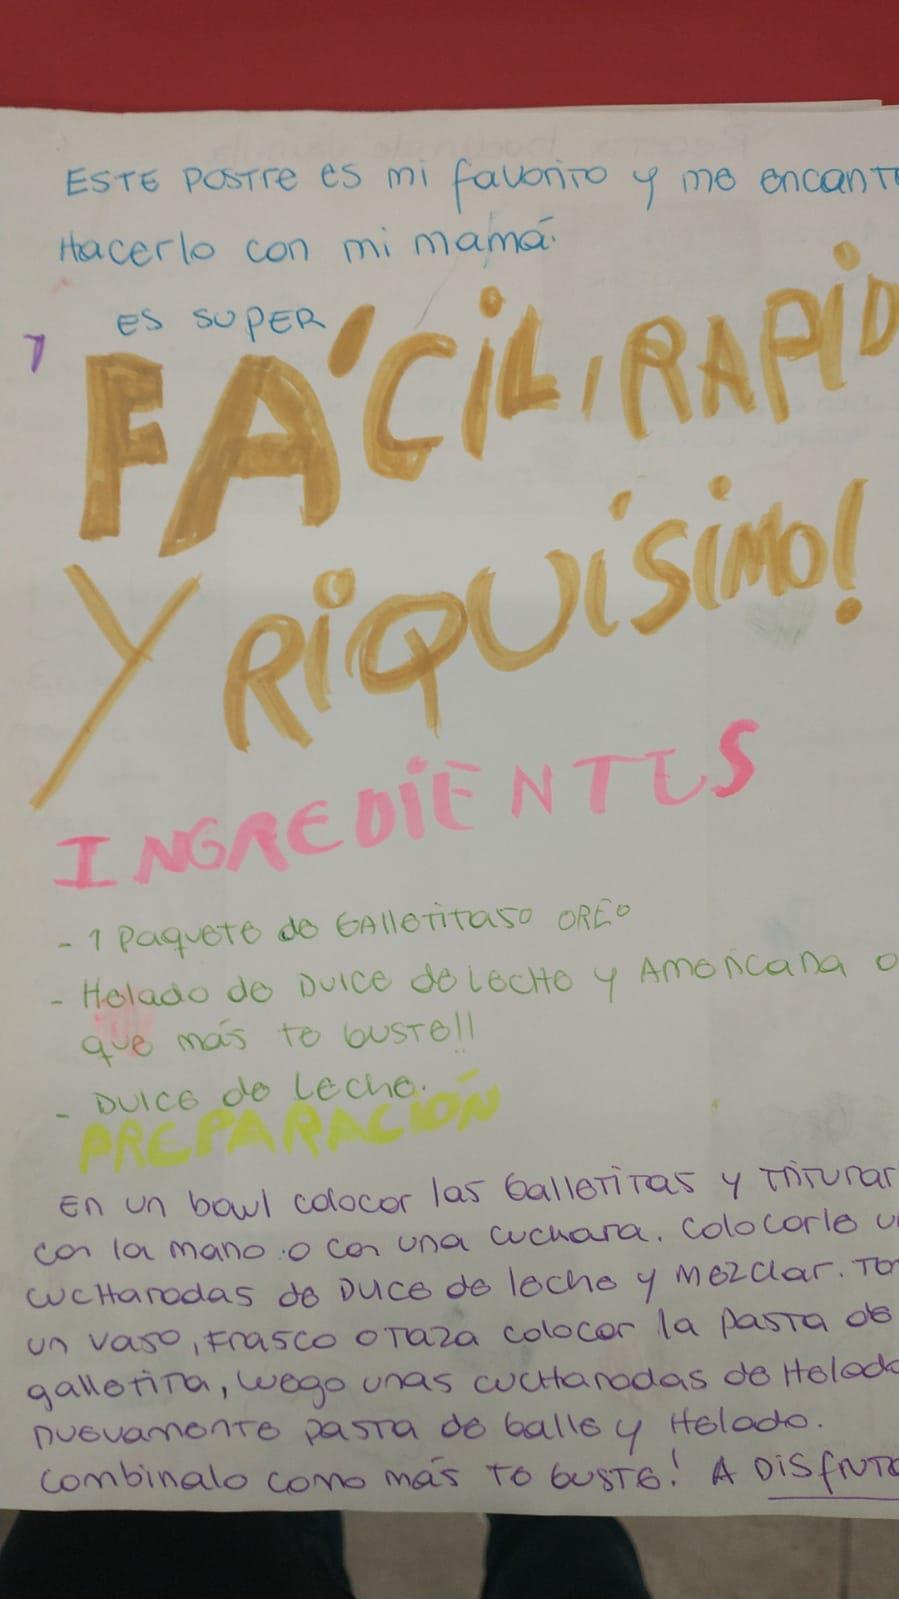 ESTE POSTRE ES mi favorito y me encant
Hacerlo con mi mamá.
ES SUPER
FÁCIL, RAPID
Y RIQUÍSIMO!
INGREDIENTES
- 1 Paquete de Galletitaso OREO
- Helado de Dulce de leche y Americana o
que más te guste!!
- Dulce de Leche.
PREPARACIÓN
En un bowl colocar las Galletitas y Triturar
con la mano o con una cuchara. Colocarle u
cucharadas de Duce de leche y mezclar.
un vaso, frasco o Taza colocar la pasta de
galletita, luego unas cucharadas de Helad
nuevamente pasta de galle y Helado.
Combinalo como más te guste! A Disfrut